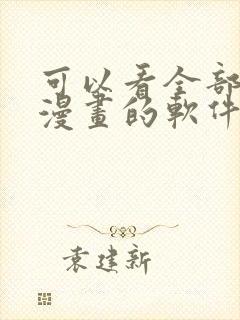 可以看全部
漫畫的軟件
袁建新